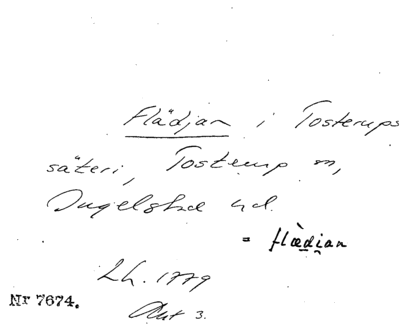 Flädjan i Tosterups
säteri, Tosterup sn,
Ingelstad hd.
= flæ̀di̯an
Lh. 1779
Akt 3.
Nr 7674.